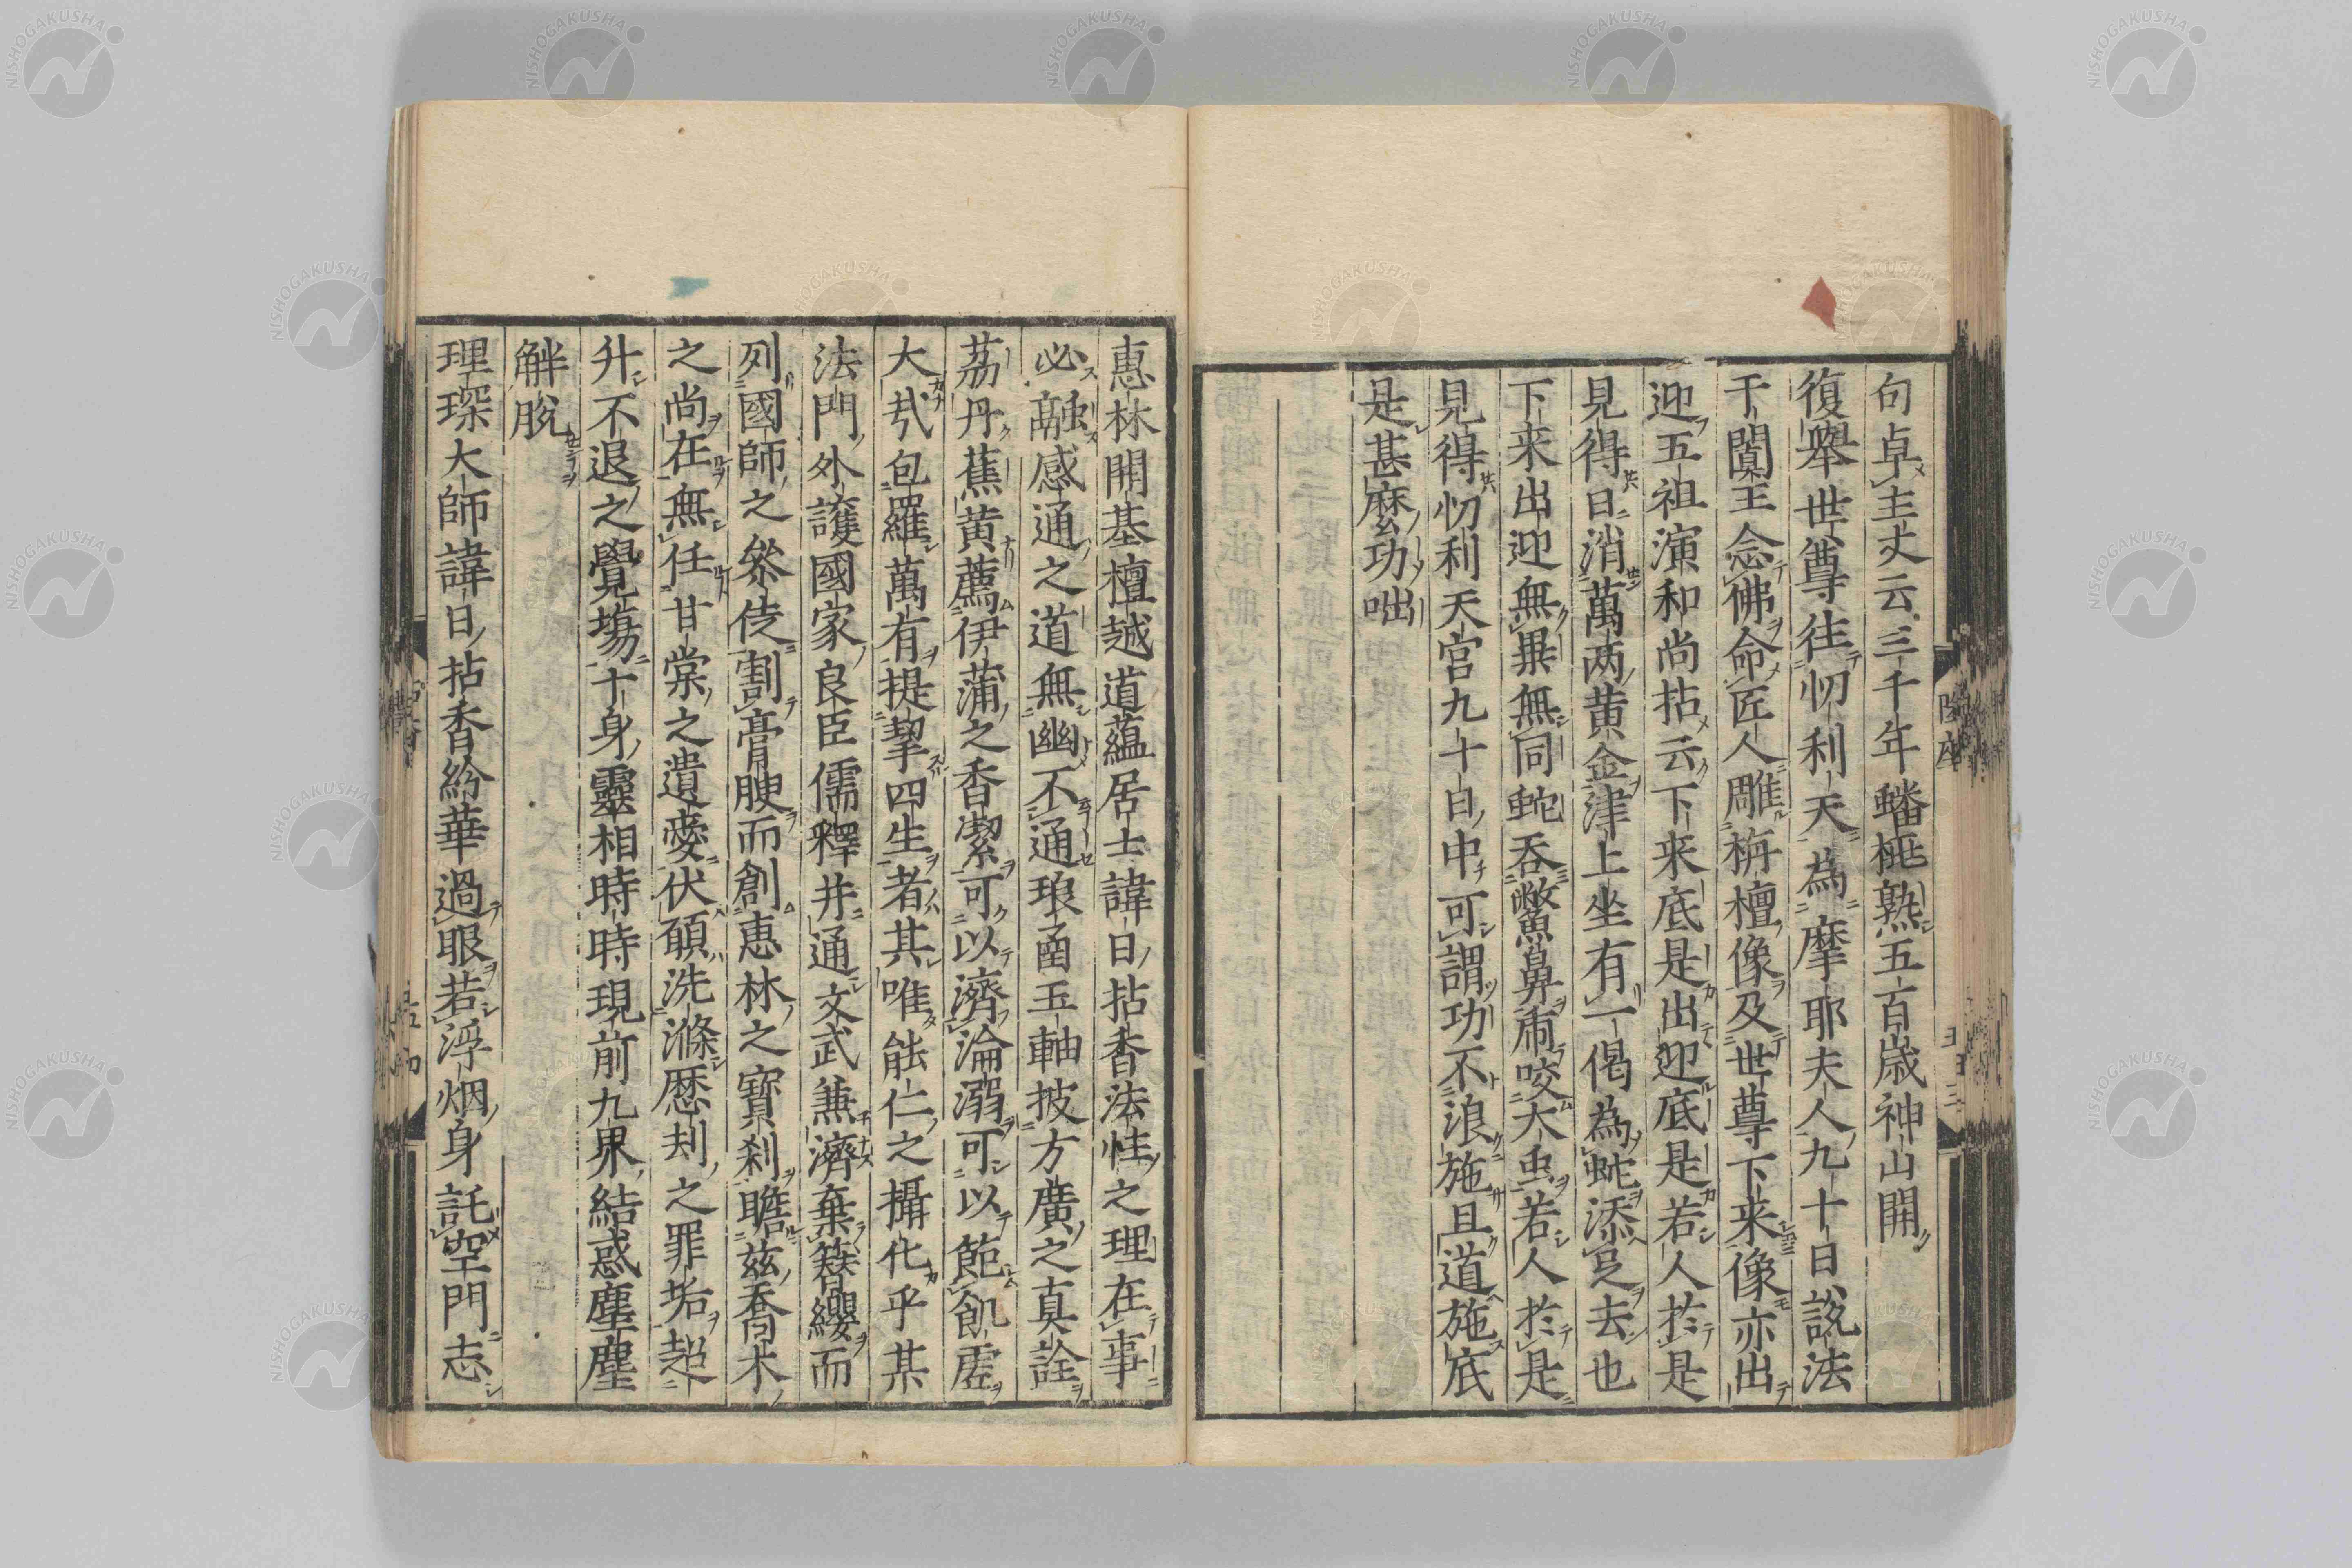 句卓主丈云三千年蟠桃熟五百歳神山開
復舉世尊往忉利天為摩耶夫人九十日說法
于闐王念佛命匠人雕栴檀像及世尊下来像亦出
迎五祖演和尚拈云下来底是出迎底是若人於是
見得日消萬兩黄金津上坐有一偈為蛇添足去也
下来出迎無異無同蛇吞鱉鼻虎咬大虫若人於是
見得忉利天宮九十日中可謂功不浪施且道施底
是甚麽功咄
惠林開基檀越道蘊居士諱日拈香法性之理在事
必融感通之道無幽不通琅函玉軸披方廣之真詮
荔丹蕉黄薦伊蒲之香潔可以濟淪溺可以飽飢虚
大哉包羅萬有提挈四生者其唯能仁之攝化乎某
法門外護國家良臣儒釋并通文武兼濟棄簪纓而
列國師之参徒割膏腴而創惠林之寶刹瞻茲喬木
之尚在無任甘棠之遺愛伏願洗滌歴刧之罪垢超
升不退之覺塲十身靈相時時現前九界結惑塵塵
解脫
理琛大師諱日拈香紛華過眼若浮烟身託空門志
陞座
NISHOGAKUSHA